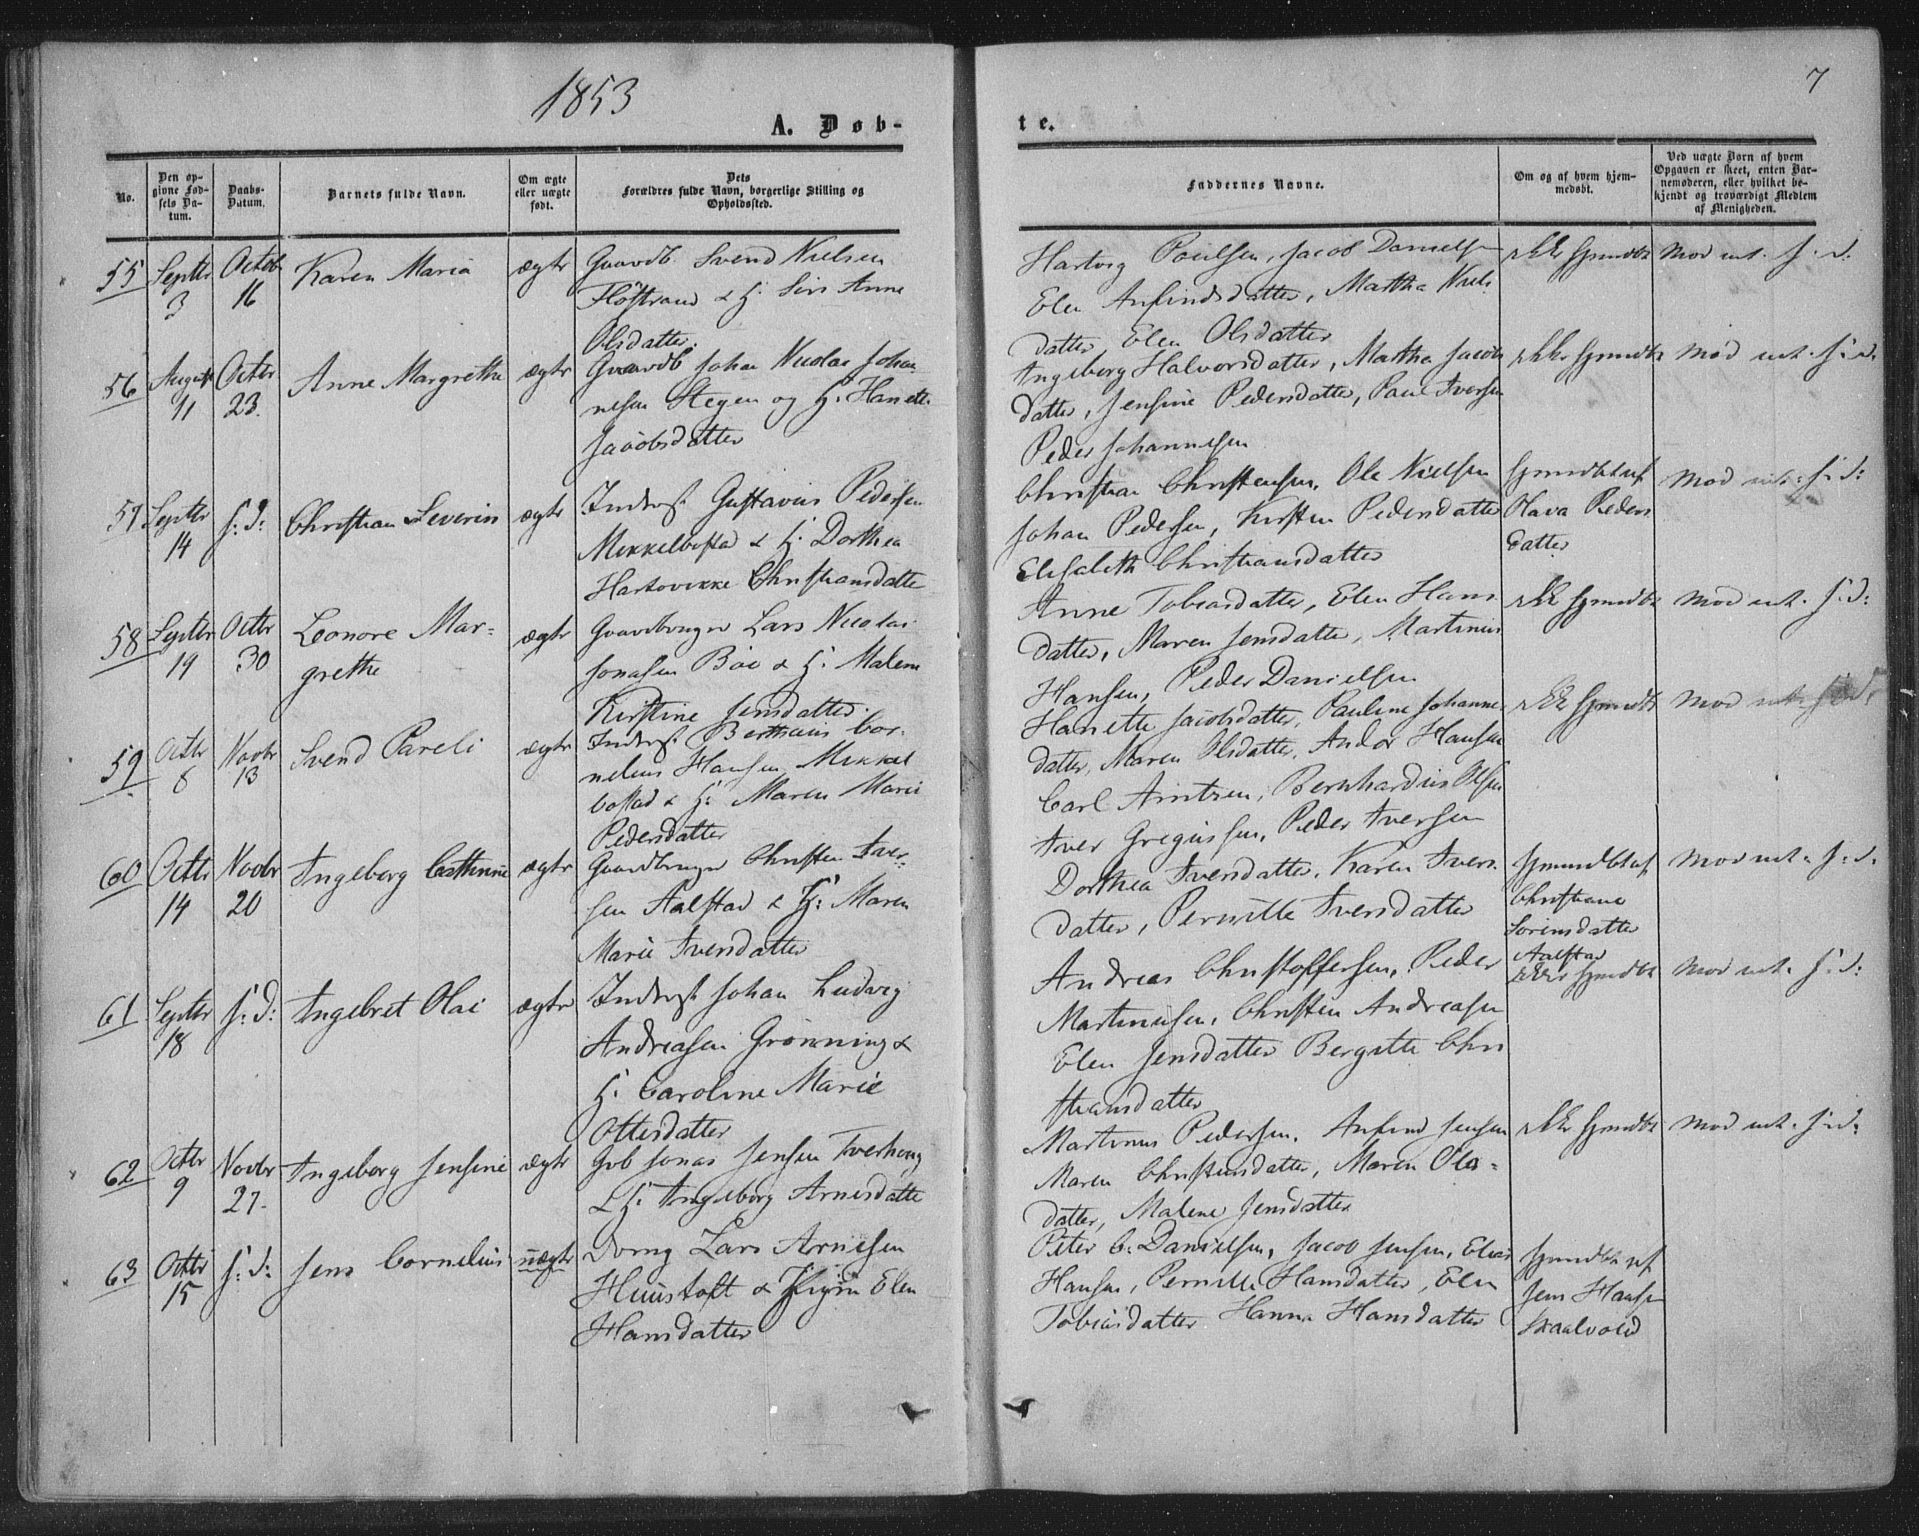 1853
7
A. Døb-
te.
No.
Den op-
givne Fød-
sels Da-
tum.
Daabs-
Datum.
Barnets fulde Navn.
Om ægte
eller uægte
født.
Dets
Forældres fulde Navn, borgerlige Stilling og
Opholdssted.
Faddernes Navne.
Om og af hvem hjem-
medøbt.
Ved uægte Børn af hvem
Opgaven er skeet, enten Bar-
nemoderen, eller hvilket be-
kjendt og troværdigt Medlem
af Menigheden.
55
Septbr
3
Octob
16
Karen Maria
ægte
Gaardb. Svend Nielsen
Flöstrand & H: Siri Anne
Olsdatter.
Hartvig Poulsen, Jacob Danielsen
Elen Anfindsdatter, Martha Niels
datter, Elen Olsdatter
ikke hjemdbt
56
August
11
Octbr
23.
Anne Margrethe
ægte
Gaardb Johan Nicolai Johan
nesen Stegen og H: Hanette
Jacobsdatter
Ingeborg Halvorsdatter, Martha Jacobs
datter, Jensine Pedersdatter, Paul Iversen
Peder Johannesen
ikke hjemdbt
57
Septbr
14
s: d:
Christian Severin
ægte
Inderst Gustavus Pedersen
Mikkelbostad & H: Dorthea
Christiansdatter
Christian Christensen, Ole Nielsen
Johan Pedersen, Kirsten Pedersdatter
Elisabeth Christiansdatter
hjemdbt af
Olava Peders
datter
58
Septbr
19
Octbr
30
Leonore Mar-
grethe
ægte
Gaardbruger Lars Nicolai
Jonasen Böe & H: Malene
Kirstine Jensdatter.
Anne Tobiasdatter, Elen Hans
datter, Maren Jensdatter, Martinus
Hansen, Peder Danielsen
ikke hjemdbt
59
Octbr
6
Novbr
13
Svend Pareli
ægte
Inderst Berthaus Cor-
nelius Hansen Mikkel
bostad & H: Maren Marie
Pedersdatter
Hanette Jacobsdatter, Pauline Johannes
datter, Maren Olsdatter, Andor Hansen
Carl Arntzen, Bernhardus Olsen
Iver Gregussen, Peder Iversen
ikke hjemdbt
60
Octbr
14
Novbr
20
Ingeborg Cathrine
ægte
Gaardbruger Christen Iver-
sen Aalstad & H: Maren
Marie Iversdatter
Dorthea Iversdatter, Karen Ivers
datter, Pernille Iversdatter
hjemdbt af
Christiane
Sörensdatter
Aalstad
61
Septbr
18
s: d:
Ingebret Olai
ægte
Inderst Johan Ludvig
Andreasen Grönning &
H: Caroline Marie
Ottesdatter
Andreas Christoffersen, Peder
Martinusen, Christen Andreasen
Elen Jensdatter Bergitte Chri
stiansdatter
ikke hjemdbt
62
Octbr
9
Novbr
27.
Ingeborg Jensine
ægte
Gb Jonas Jensen
& H: Ingeborg Arnesdatter
Martinus Pedersen, Anfind Jensen
Maren Christensdatter, Maren Ola-
datter, Malene Jensdatter
ikke hjemdbt
63
Octbr
15
s: d:
Jens Cornelius
uægte
Lars Arnesen
Hunstoft & Pigen Elen
Hansdatter
Peter C. Danielsen, Jacob Jensen, Elias
Hansen, Pernille Hansdatter, Elen
Tobiasdatter Hanna Hansdatter
hjemdbt af
Jens Hansen
Skaalvold